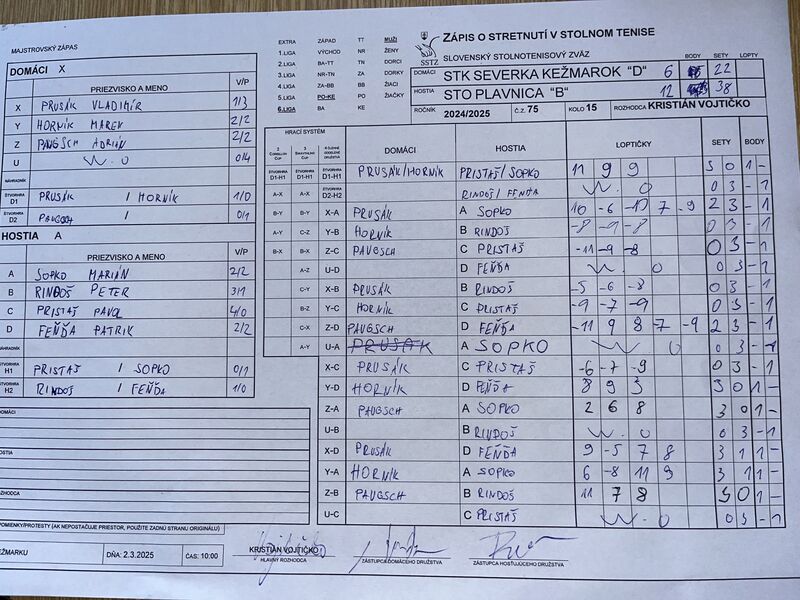 MAJSTROVSKÝ ZÁPAS
EXTRA ZÁPAD TT MUŽI
1.LIGA VÝCHOD NR ŽENY
2.LIGA BA-TT TN DORCI
3.LIGA NR-TN ZA DORKY
4.LIGA ZA-BB BB ŽIACI
5.LIGA PO-KE PO ŽIAČKY
6.LIGA BA KE
SSTZ
ZÁPIS O STRETNUTÍ V STOLNOM TENISE
SLOVENSKÝ STOLNOTENISOVÝ ZVÄZ
BODY SETY LOPTY
DOMÁCI STK SEVERKA KEŽMAROK "D" 6 22
HOSTIA STO PLAVNICA "B" 12 38
ROČNÍK 2024/2025 č.z. 75 KOLO 15 ROZHODCA KRISTIÁN VOJTIČKO
DOMÁCI X
PRIEZVISKO A MENO V/P
X PRUSÁK VLADIMÍR 1/3
Y HORNÍK MAREK 2/2
Z PAUGSCH ADRIÁN 2/2
U W.O 0/4
NÁHRADNÍK
ŠTVORHRA D1 PRUSÁK / HORNÍK 1/0
ŠTVORHRA D2 PAUGSCH / 0/1
HOSTIA A
PRIEZVISKO A MENO V/P
A SOPKO MARIÁN 2/2
B RINDOŠ PETER 3/1
C PRISTAŠ PAVOL 4/0
D FEŇĎA PATRIK 2/2
NÁHRADNÍK
ŠTVORHRA H1 PRISTAŠ / SOPKO 0/1
ŠTVORHRA H2 RINDOŠ / FEŇĎA 1/0
DOMÁCI
HOSTIA
ROZHODCA
HRACÍ SYSTÉM DOMÁCI HOSTIA LOPTIČKY SETY BODY
ŠTVORHRA D1-H1 ŠTVORHRA D1-H1 ŠTVORHRA D1-H1 PRUSÁK/HORNÍK PRISTAŠ/SOPKO 11 9 9 3 0 1 -
A-X A-X ŠTVORHRA D2-H2 RINDOŠ/FEŇĎA W. O 0 3 - 1
B-Y B-Y X-A PRUSÁK A SOPKO 10 -6 -10 7 -9 2 3 - 1
A-Y C-Z Y-B HORNÍK B RINDOŠ -8 -9 -8 0 3 - 1
B-X B-X Z-C PAUGSCH C PRISTAŠ -11 -9 -8 0 3 - 1
A-Z U-D D FEŇĎA W. O 0 3 - 1
C-Y X-B PRUSÁK B RINDOŠ -5 -6 -8 0 3 - 1
B-Z Y-C HORNÍK C PRISTAŠ -9 -7 -9 0 3 - 1
C-X Z-D PAUGSCH D FEŇĎA -11 9 8 7 -9 2 3 - 1
A-Y U-A PRUSÁK A SOPKO W O 0 3 - 1
X-C PRUSÁK C PRISTAŠ -6 -7 -9 0 3 - 1
Y-D HORNÍK D FEŇĎA 8 9 3 3 0 1 -
Z-A PAUGSCH A SOPKO 2 6 8 3 0 1 -
U-B B RINDOŠ W. O 0 3 - 1
X-D PRUSÁK D FEŇĎA 9 -5 7 8 3 1 1 -
Y-A HORNÍK A SOPKO 6 -8 11 9 3 1 1 -
Z-B PAUGSCH B RINDOŠ 11 7 8 3 0 1 -
U-C C PRISTAŠ W. O 0 3 - 1
POMIENKY/PROTESTY (AK NEPOSTAČUJE PRIESTOR, POUŽITE ZADNÚ STRANU ORIGINÁLU)
EŽMARKU DŇA: 2.3.2025 ČAS: 10:00
KRISTIÁN VOJTIČKO
HLAVNÝ ROZHODCA ZÁSTUPCA DOMÁCEHO DRUŽSTVA ZÁSTUPCA HOSŤUJÚCEHO DRUŽSTVA